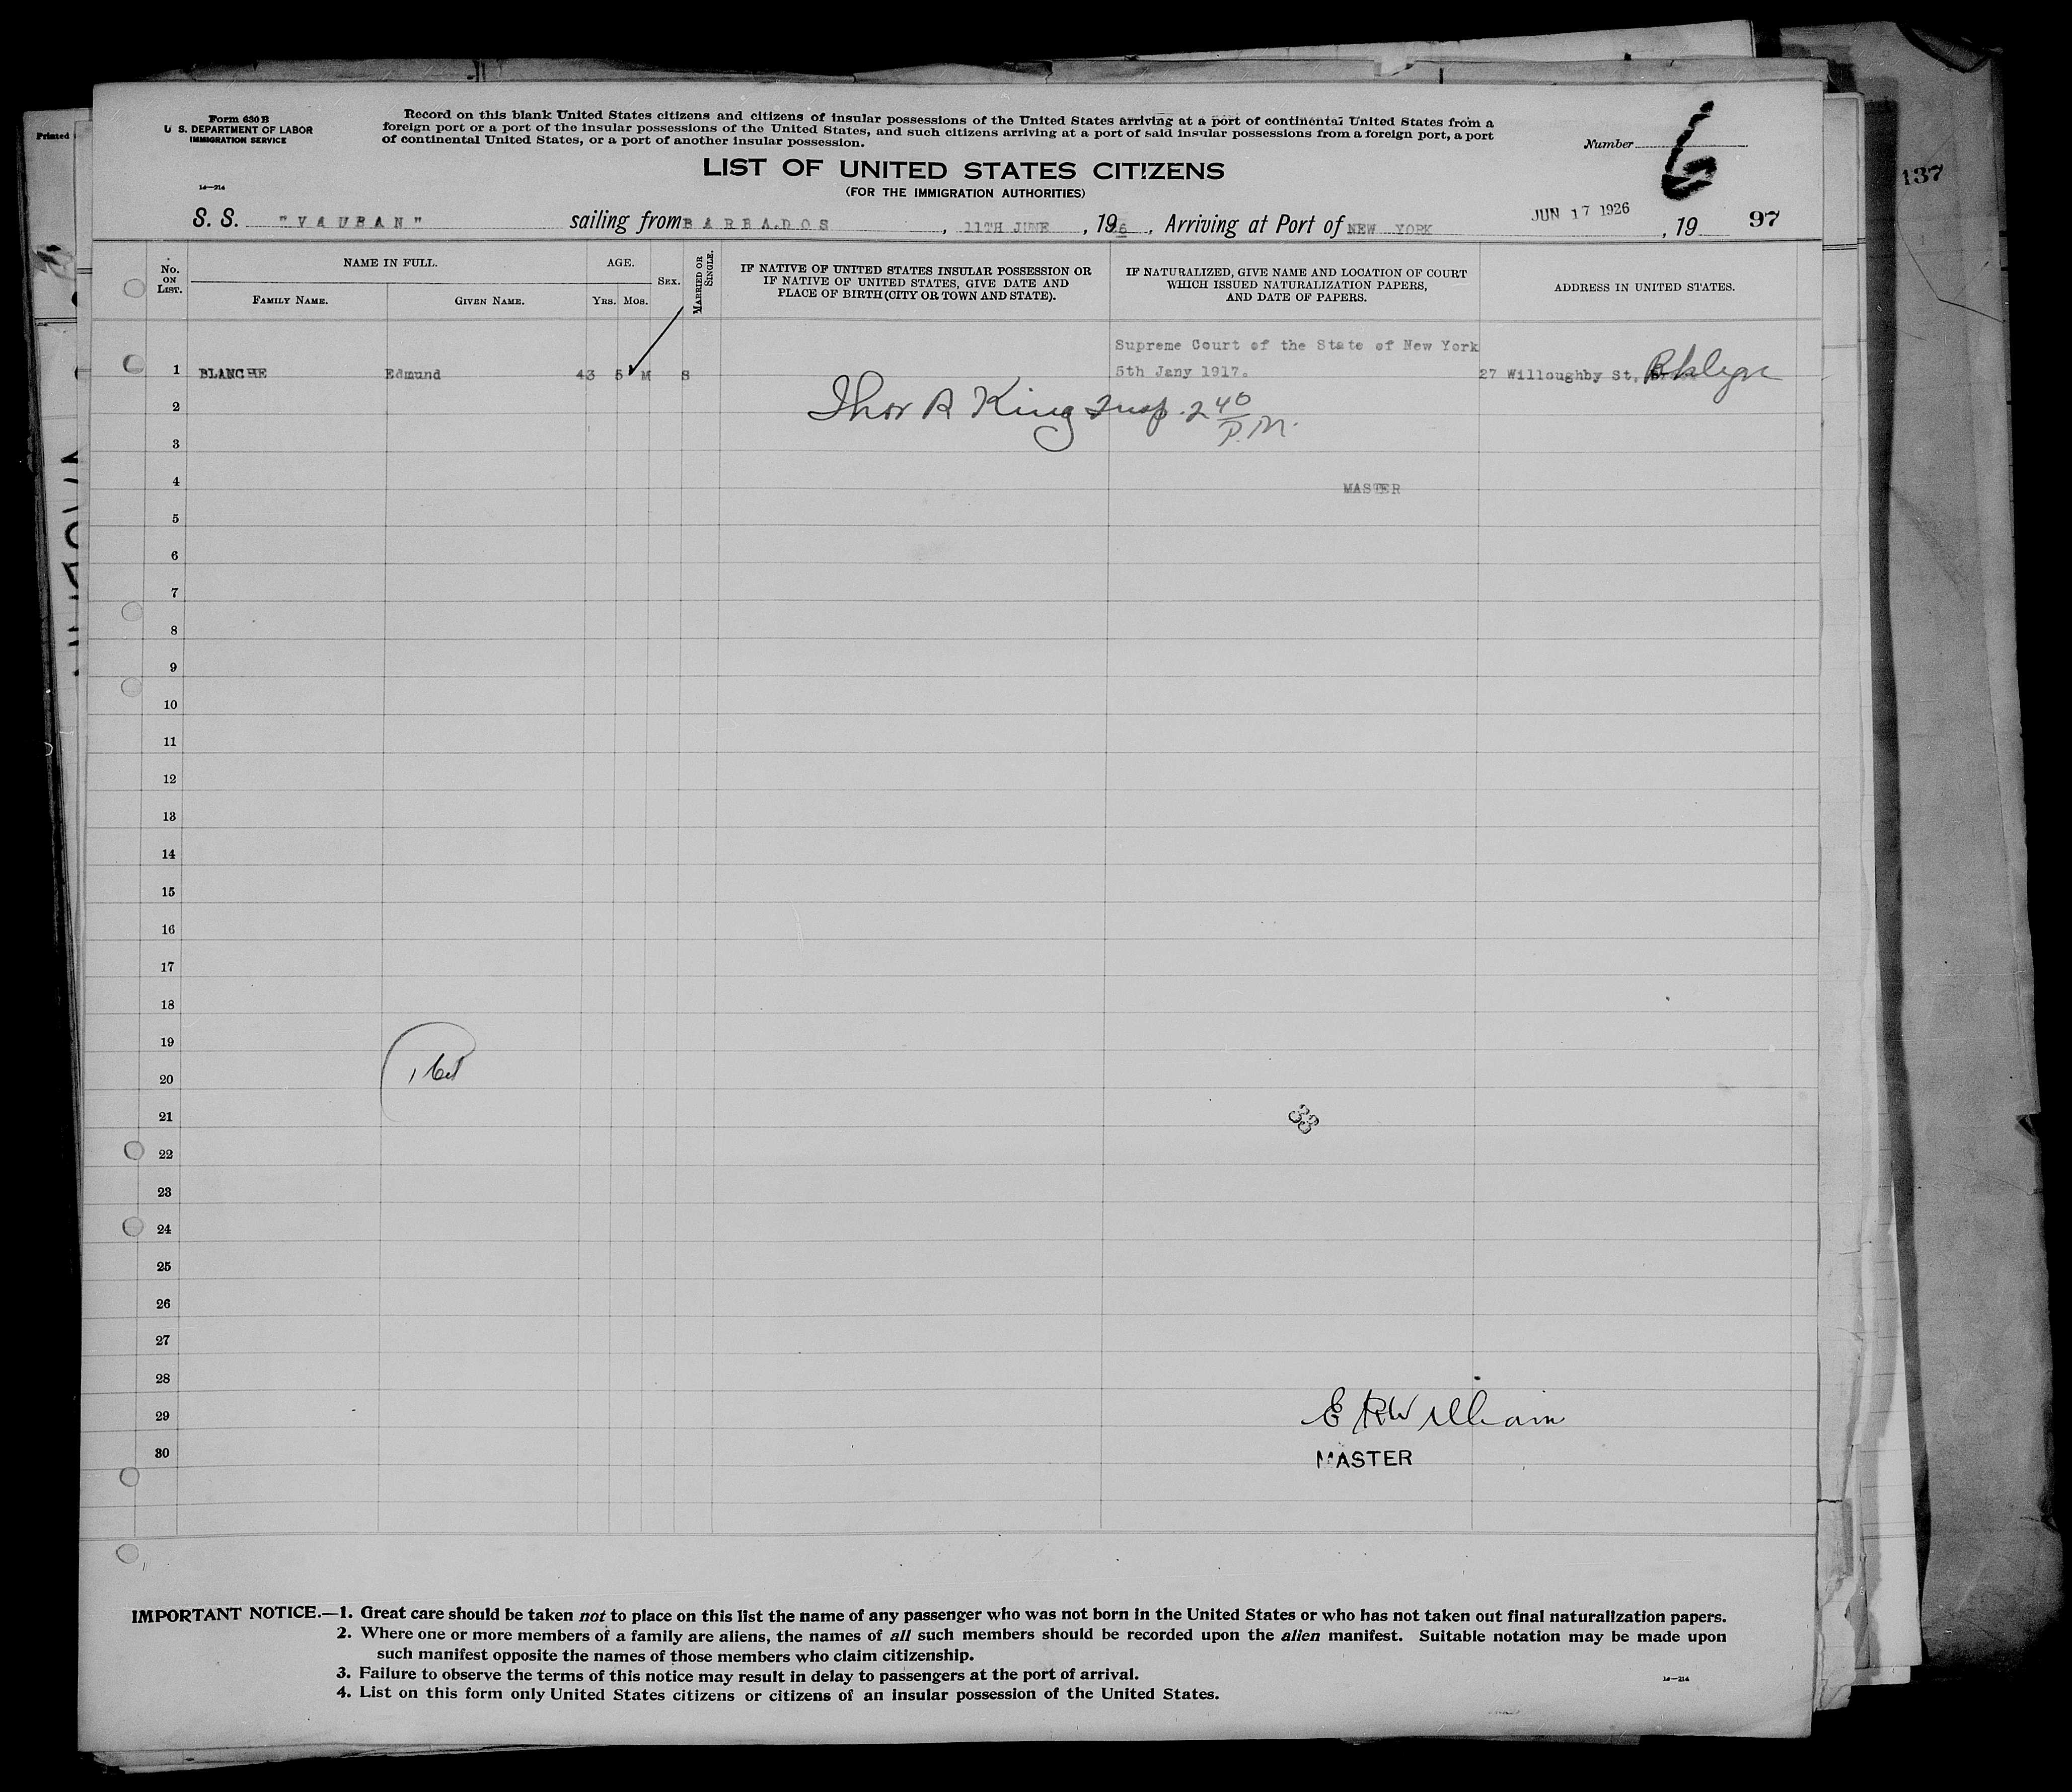 Printed
Form 630 B
U. S. DEPARTMENT OF LABOR
IMMIGRATION SERVICE
Record on this blank United States citizens and citizens of insular possessions of the United States arriving at a port of continental United States from a
foreign port or a port of the insular possessions of the United States, and such citizens arriving at a port of said insular possessions from a foreign port, a port
of continental United States, or a port of another insular possession.
Number 6
137
LIST OF UNITED STATES CITIZENS
(FOR THE IMMIGRATION AUTHORITIES)
14—214
S. S. "VAUBAN" sailing from BARBADOS, 11TH JUNE, 1926, Arriving at Port of NEW YORK JUN 17 1926, 19 97
No. ON LIST.
NAME IN FULL.
FAMILY NAME.
GIVEN NAME.
AGE.
YRS. MOS.
SEX.
MARRIED OR SINGLE.
IF NATIVE OF UNITED STATES INSULAR POSSESSION OR
IF NATIVE OF UNITED STATES, GIVE DATE AND
PLACE OF BIRTH (CITY OR TOWN AND STATE).
IF NATURALIZED, GIVE NAME AND LOCATION OF COURT
WHICH ISSUED NATURALIZATION PAPERS,
AND DATE OF PAPERS.
ADDRESS IN UNITED STATES.
Supreme Court of the State of New York
1 BLANCHE Edmund 43 5 M S 5th Jany 1917. 27 Willoughby St. Bklyn
2 Thor R King Insp. 2 40 P.M.
3
4 MASTER
5
6
7
8
9
10
11
12
13
14
15
16
17
18
19
20
21 33
22
23
24
25
26
27
28
29 E R William
30 MASTER
IMPORTANT NOTICE.—1. Great care should be taken not to place on this list the name of any passenger who was not born in the United States or who has not taken out final naturalization papers.
2. Where one or more members of a family are aliens, the names of all such members should be recorded upon the alien manifest. Suitable notation may be made upon
such manifest opposite the names of those members who claim citizenship.
3. Failure to observe the terms of this notice may result in delay to passengers at the port of arrival.
4. List on this form only United States citizens or citizens of an insular possession of the United States.
14—214